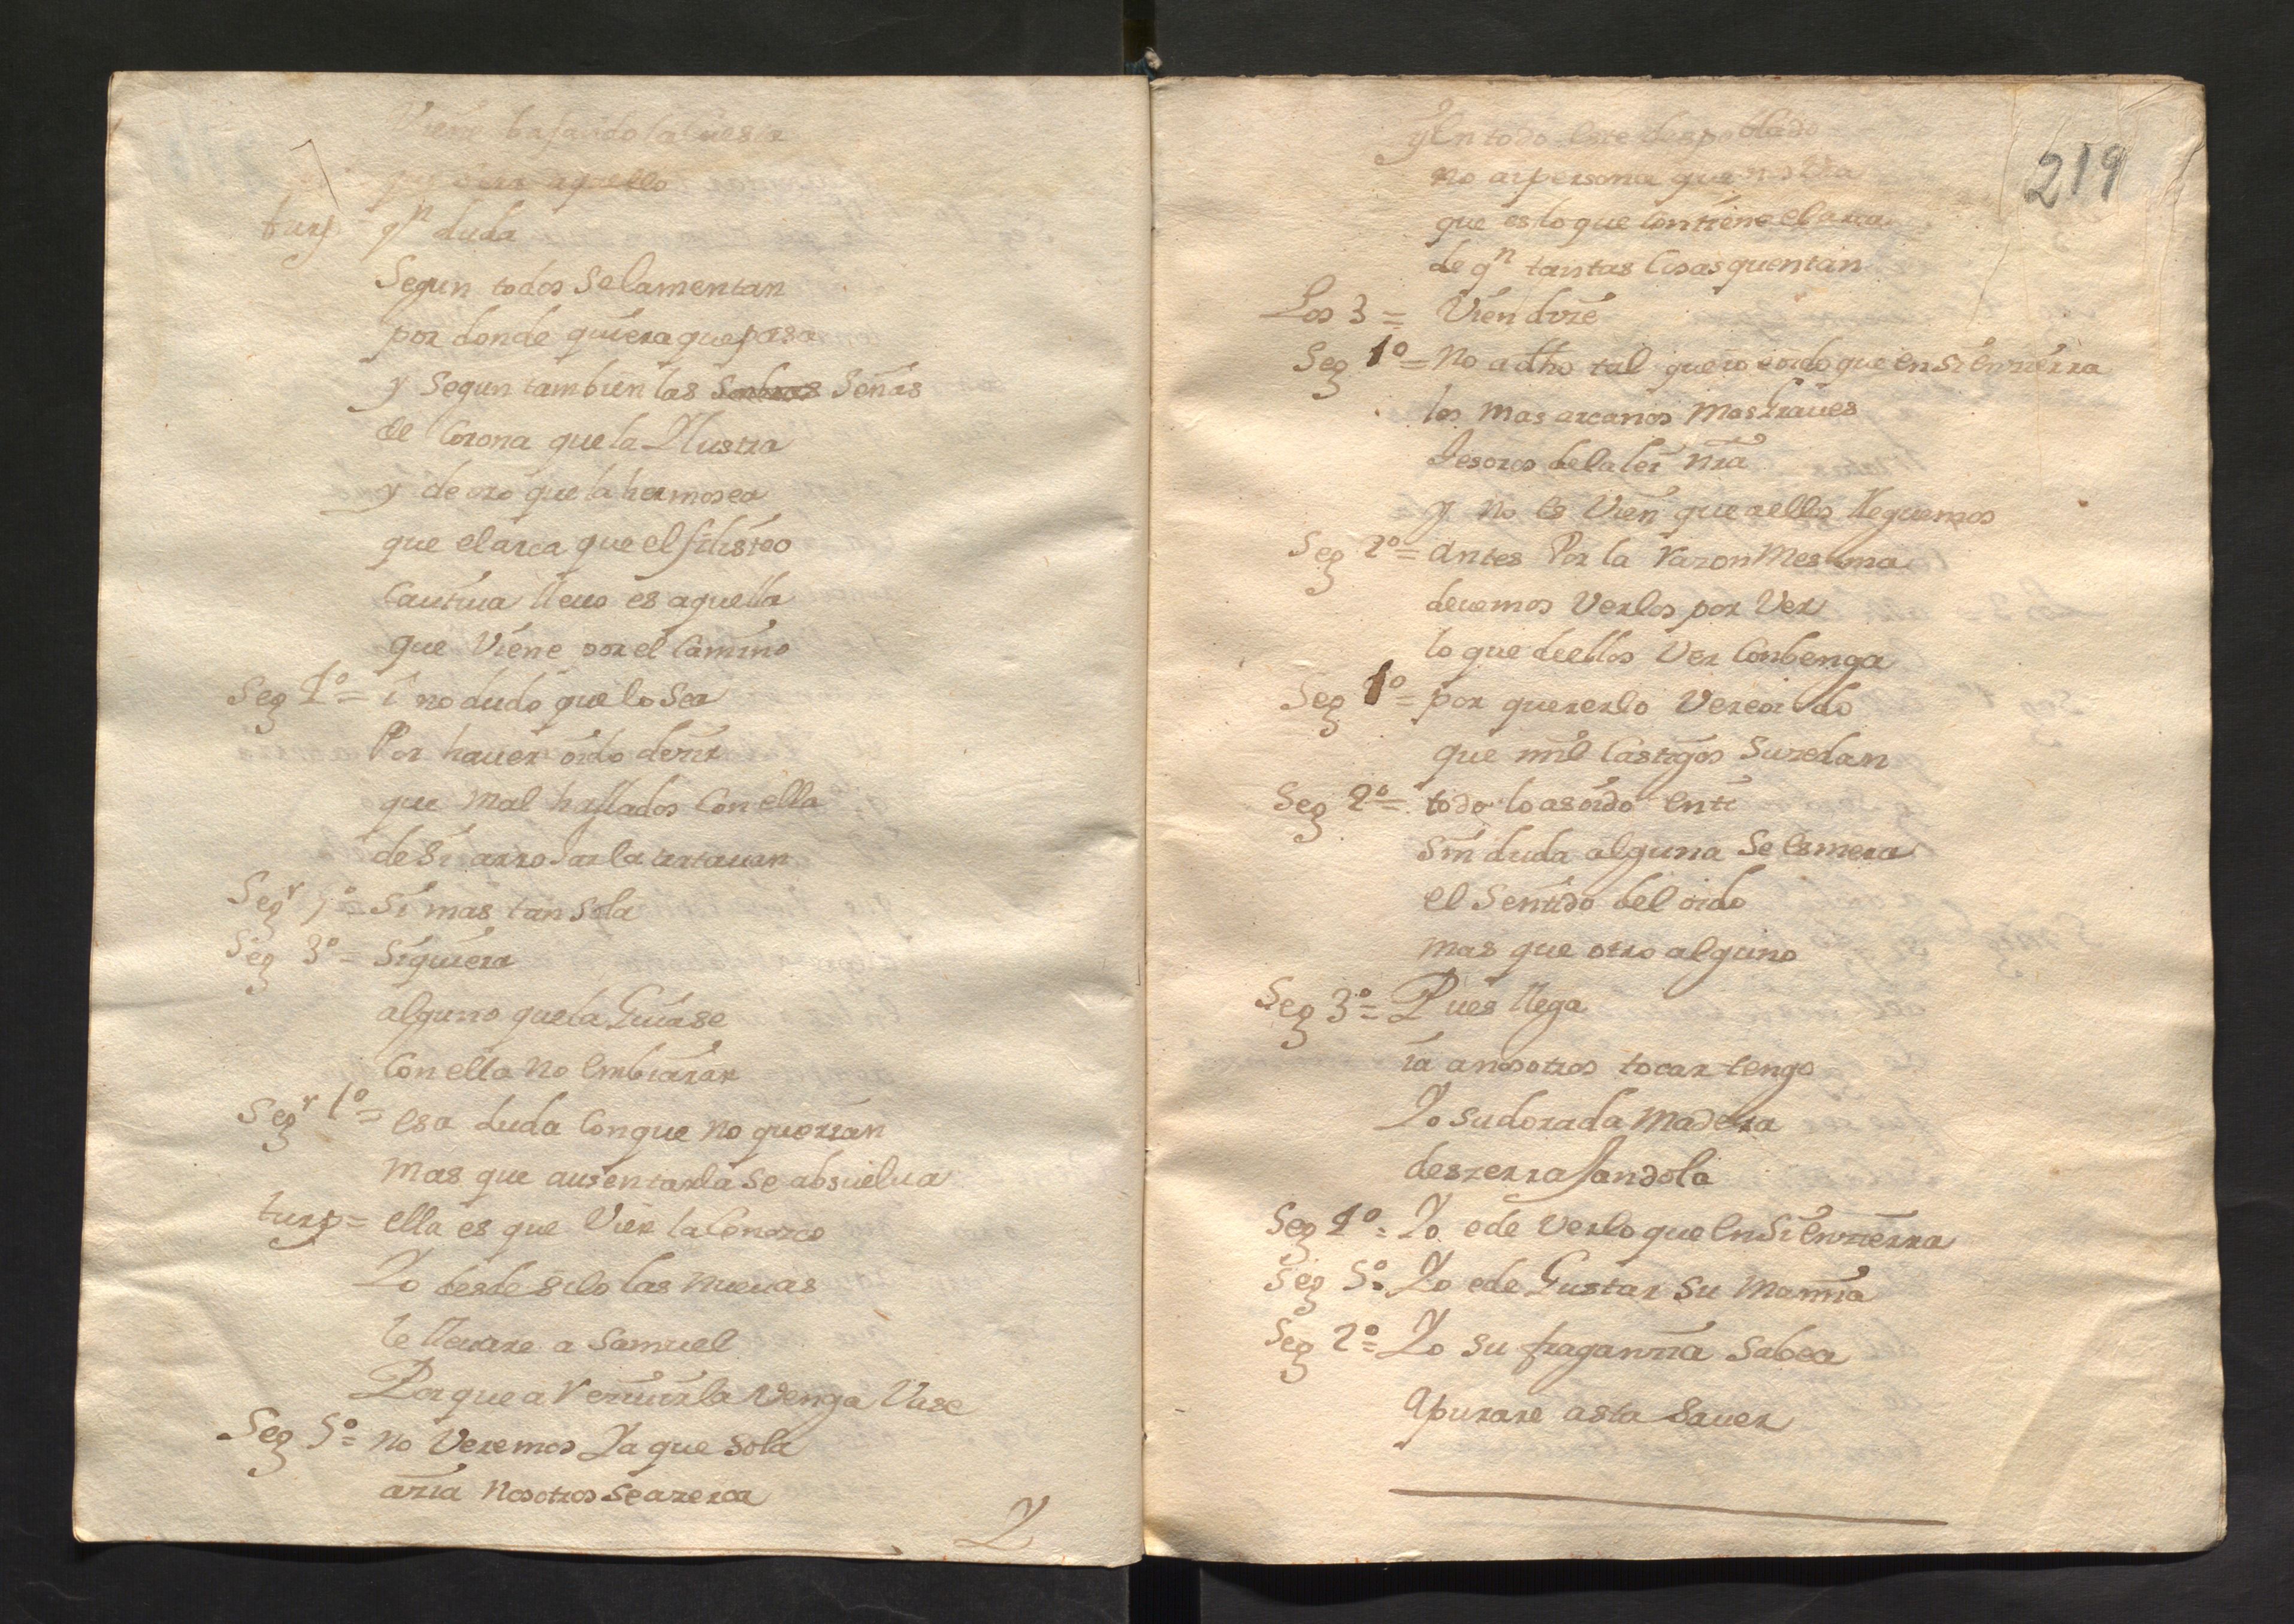 Viene bajando la cuesta
que sera aquello
turp = q^n duda
Segun todos Se lamentan
por donde quiera que pasa
y Segun tambien las Señas
de Corona que la Ylustra
y de oro que la hermosea
que el arca que el filisteo
Cautiua lleuo es aquella
que Viene por el Camino
Seg 1º = i no dudo que lo Sea
Por hauer oido dezir
que mal hallados Con ella
de Si arrojarla tratauan
Seg^r 5º = Si mas tan Sola
Seg 3º = Siquiera
alguno que la Guiase
Con ella no embiaran
Seg^r 1º = esa duda Con que no querrian
mas que ausentarla se absuelua
turp = ella es que Vien la Conozco
Yo desde silo las nueuas
le lleuare a Samuel
Porque a reziuirla Venga Vase
Seg 5º = no Veremos Ya que Sola
azia nosotros se azerca
Y
219
y en todo este despoblado
no ai persona que nos Vea
que es lo que Contiene el arca
de q^n tantas Cosas quentan
Los 3 = Vien dize
Seg 1º = No a dho tal que io e oido que en Si enzierra
los mas arcanos mas Graues
tesoros de la lei nra
y no es Vien que a ellos lleguemos
Seg 2º = antes Por la razon mesma
deuemos Verlos por Ver
lo que de ellos Ver Conbenga
Seg 1º = por quererlo Ver e oido
que mil Castigos Suzedan
Seg 2º = todo lo as oido en ti
Sin duda alguna Se esmera
el Sentido del oido
mas que otro alguno
Seg 3º = Pues llega
ia a nosotros tocar tengo
Yo su dorada madera
deszerrajandola
Seg 1º = Yo e de Ver lo que en Si enzierra
Seg 5º = Yo e de Gustar Su manna
Seg 2º = Yo su fraganzia Sabea
Apurare asta Sauer